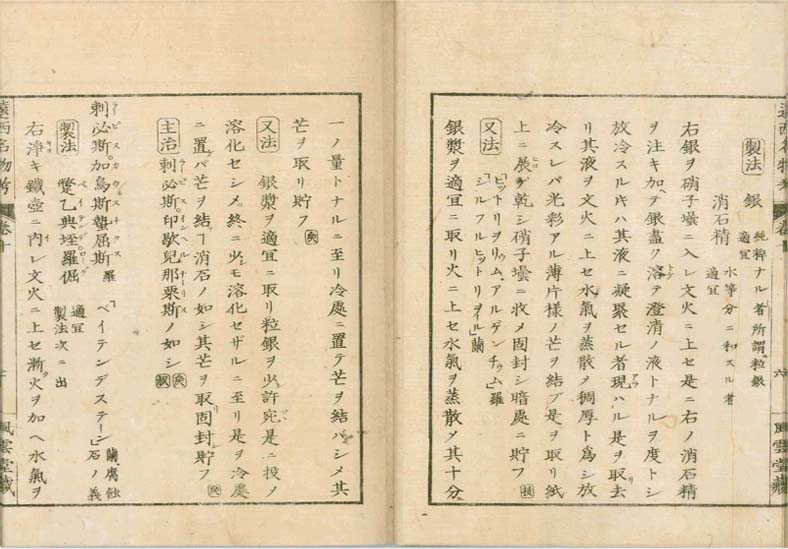 製法 銀 純粹ナル者所謂粒銀 適宜
消石精 水等分ニ和スル者 適宜
右銀ヲ硝子壜ニ入レ文火ニ上セ是ニ右ノ消石精
ヲ注キ加テ銀盡ク溶テ澄清ノ液トナルヲ度トシ
放冷スルキハ其液ニ凝聚セル者現ハル是ヲ取去
リ其液ヲ文火ニ上セ水氣ヲ蒸散メ稠厚ト爲シ放
冷スレバ光彩アル薄片様ノ芒ヲ結ブ是ヲ取リ紙
上ニ展ゲ乾シ硝子壜ニ收メ固封シ暗處ニ貯フ
又法 「ヒットリヲリウム、アルゲンチウム」羅 「シルフルヒットリヲイル」蘭
銀漿ヲ適宜ニ取リ火ニ上セ水氣ヲ蒸散メ其十分
一ノ量トナルニ至リ冷處ニ置テ芒ヲ結バシメ其
芒ヲ取リ貯フ
又法 銀漿ヲ適宜ニ取リ粒銀ヲ少許宛是ニ投メ
溶化セシメ終ニ少モ溶化セザルニ至リ是ヲ冷處
ニ置バ芒ヲ結ブヿ消石ノ如シ其芒ヲ取リ固封シ貯フ
主治 刺必斯印歇兒那栗斯ノ如シ
刺必斯加烏斯蟄屈斯 羅 「ベイテンデステーン」石ノ義 蘭腐蝕
製法 驚乙典垤羅倔 適宜 製法次ニ出
右淨キ鐵壺ニ内レ文火ニ上セ漸々火ヲ加ヘ水氣ヲ
遠西名物考
卷十
風雲堂藏